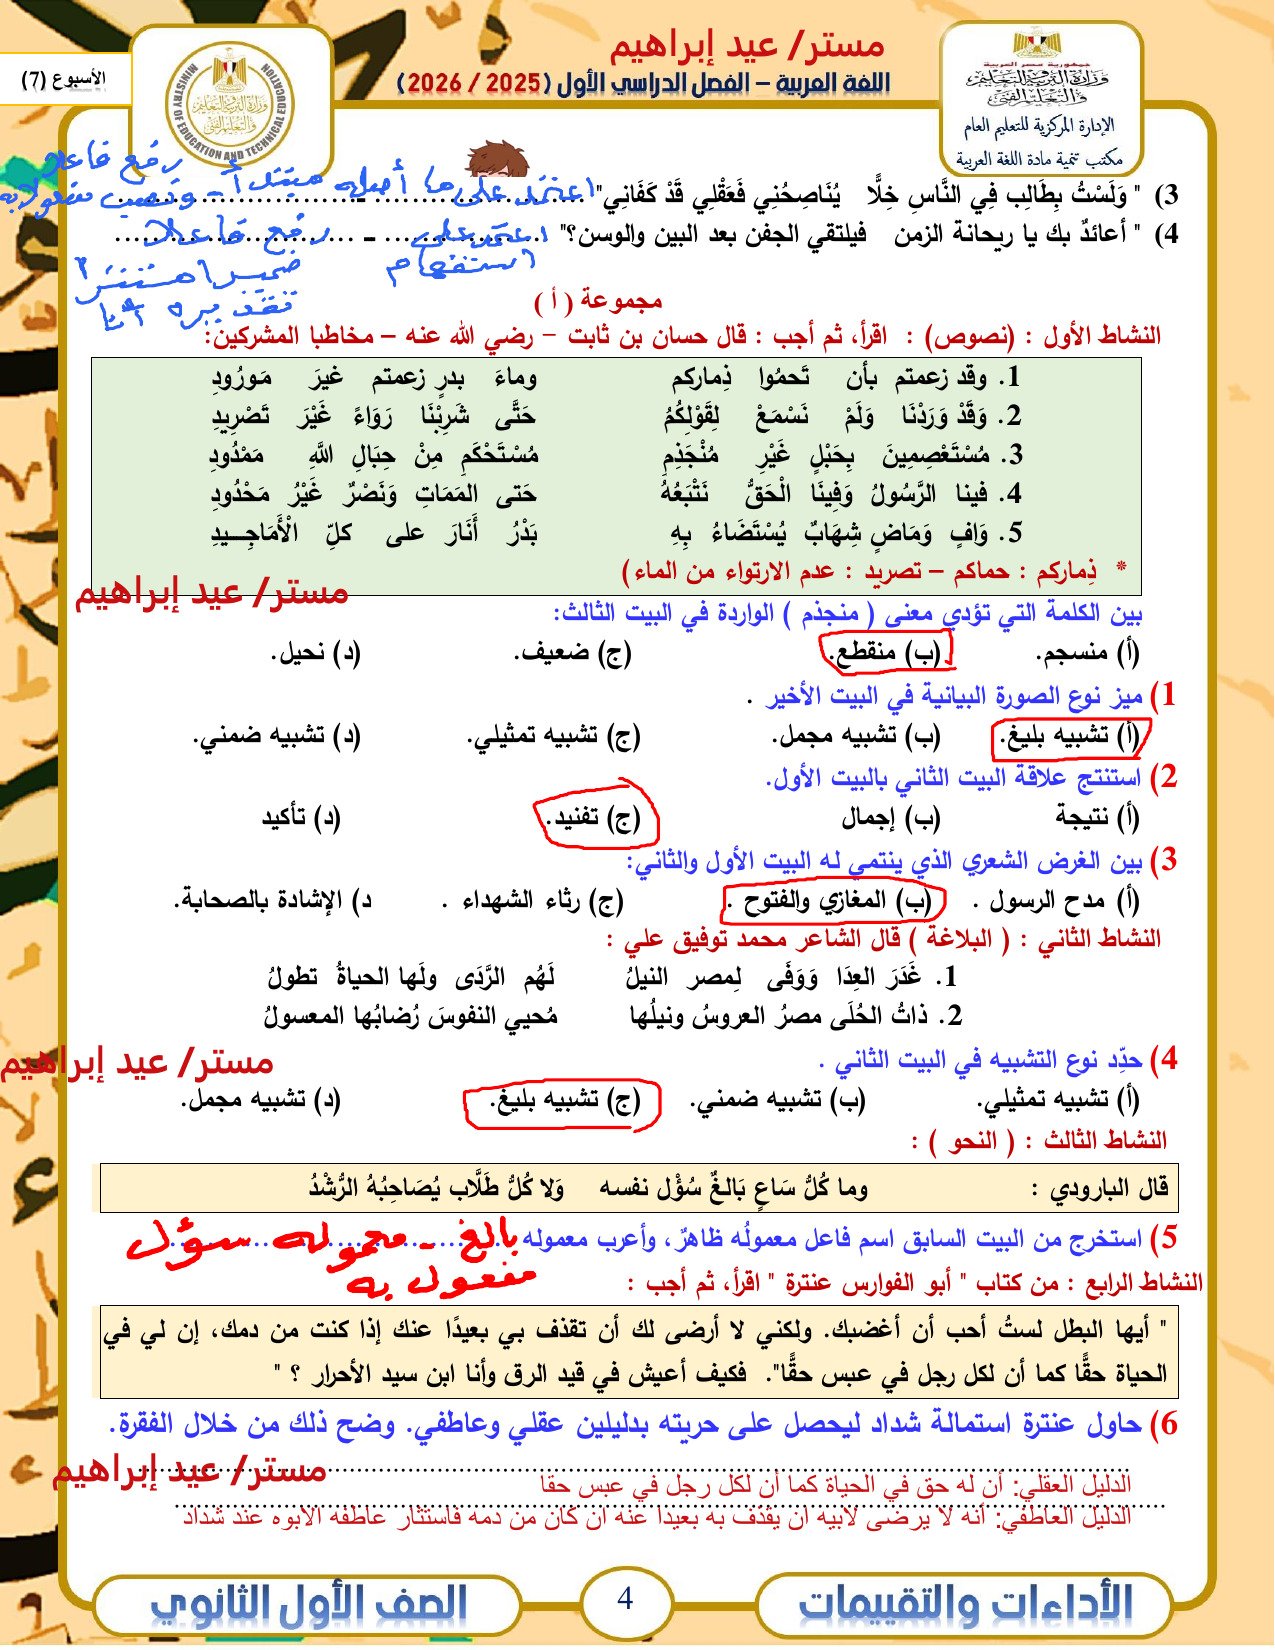 مستر/ عيد إبراهيم
اللغة العربية – الفصل الدراسي الأول (2025 / 2026)
الأسبوع (7)
جمهورية مصر العربية
وزارة التربية والتعليم
والتعليم الفني
الإدارة المركزية للتعليم العام
مكتب تنمية مادة اللغة العربية
وزارة التربية والتعليم
والتعليم الفني
MINISTRY OF EDUCATION AND TECHNICAL EDUCATION
3) " وَلَسْتُ بِطَالِب فِي النَّاسِ خِلًّا يُنَاصِحُنِي فَعَقْلِي قَدْ كَفَانِي" اعتمد على ما أصله مبتدأ - رفع فاعلا ونصب مفعولا به
4) " أعائدٌ بك يا ريحانة الزمن فيلتقي الجفن بعد البين والوسن؟" اعتمد على استفهام - رفع فاعلا ضميرا مستترا تقديره أنا
مجموعة ( أ )
النشاط الأول : (نصوص) : اقرأ، ثم أجب : قال حسان بن ثابت – رضي الله عنه – مخاطبا المشركين:
1. وقد زعمتم بأن تَحمُوا ذِماركم وماءَ بدرٍ زعمتم غيرَ مَورُودِ
2. وَقَدْ وَرَدْنَا وَلَمْ نَسْمَعْ لِقَوْلِكُمُ حَتَّى شَرِبْنَا رَوَاءً غَيْرَ تَصْرِيدِ
3. مُسْتَعْصِمِينَ بِحَبْلٍ غَيْرِ مُنْجَذِمِ مُسْتَحْكَمِ مِنْ حِبَالِ اللَّهِ مَمْدُودِ
4. فينا الرَّسُولُ وَفِينَا الْحَقُّ نَتْبَعُهُ حَتى المَمَاتِ وَنَصْرٌ غَيْرُ مَحْدُودِ
5. وَافٍ وَمَاضٍ شِهَابٌ يُسْتَضَاءُ بِهِ بَدْرُ أَنَارَ على كلِّ الْأَمَاجِـــيدِ
* ذِماركم : حماكم – تصريد : عدم الارتواء من الماء)
مستر/ عيد إبراهيم
بين الكلمة التي تؤدي معنى ( منجذم ) الواردة في البيت الثالث:
(أ) منسجم. (ب) منقطع. (ج) ضعيف. (د) نحيل.
1) ميز نوع الصورة البيانية في البيت الأخير .
(أ) تشبيه بليغ. (ب) تشبيه مجمل. (ج) تشبيه تمثيلي. (د) تشبيه ضمني.
2) استنتج علاقة البيت الثاني بالبيت الأول.
(أ) نتيجة (ب) إجمال (ج) تفنيد. (د) تأكيد
3) بين الغرض الشعري الذي ينتمي له البيت الأول والثاني:
(أ) مدح الرسول . (ب) المغازي والفتوح . (ج) رثاء الشهداء . د) الإشادة بالصحابة.
النشاط الثاني : ( البلاغة ) قال الشاعر محمد توفيق علي :
1. غَدَرَ العِدَا وَوَفَى لِمصر النيلُ لَهُم الرَّدَى ولَها الحياةُ تطولُ
2. ذاتُ الحُلَى مصرُ العروسُ ونيلُها مُحيي النفوسَ رُضابُها المعسولُ
مستر/ عيد إبراهيم
4) حدِّد نوع التشبيه في البيت الثاني .
(أ) تشبيه تمثيلي. (ب) تشبيه ضمني. (ج) تشبيه بليغ. (د) تشبيه مجمل.
النشاط الثالث : ( النحو ) :
قال البارودي : وما كُلُّ سَاعٍ بَالغٌ سُؤْل نفسه وَلا كُلُّ طَلَّاب يُصَاحِبُهُ الرُّشْدُ
5) استخرج من البيت السابق اسم فاعل معمولُه ظاهرٌ، وأعرب معموله بالغ - معموله سؤل
مفعول به
النشاط الرابع : من كتاب " أبو الفوارس عنترة " اقرأ، ثم أجب :
" أيها البطل لستُ أحب أن أغضبك. ولكني لا أرضى لك أن تقذف بي بعيدًا عنك إذا كنت من دمك، إن لي في
الحياة حقًّا كما أن لكل رجل في عبس حقًا". فكيف أعيش في قيد الرق وأنا ابن سيد الأحرار ؟ "
6) حاول عنترة استمالة شداد ليحصل على حريته بدليلين عقلي وعاطفي. وضح ذلك من خلال الفقرة.
مستر/ عيد إبراهيم
الدليل العقلي: أن له حق في الحياة كما أن لكل رجل في عبس حقا
الدليل العاطفي: أنه لا يرضى لابيه ان يقذف به بعيدا عنه ان كان من دمه فاستثار عاطفه الابوه عند شداد
الأداءات والتقييمات
4
الصف الأول الثانوي